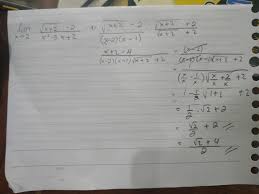 lim x→2 √(x+2) - 2 / x² - 3x + 2 → √(x+2) - 2 / (x-2)(x-1) · √(x+2) + 2 / √(x+2) + 2
x+2 - 4 / (x-2)(x-1)√x+2 + 2 = (x-2) / (x-2)(x-1)√x+2 + 2
= 1 - 1/2 √1+1 + 2
= 1/2 · √2 + 2
= √2 / 2 + 2
= √2 + 4 / 2